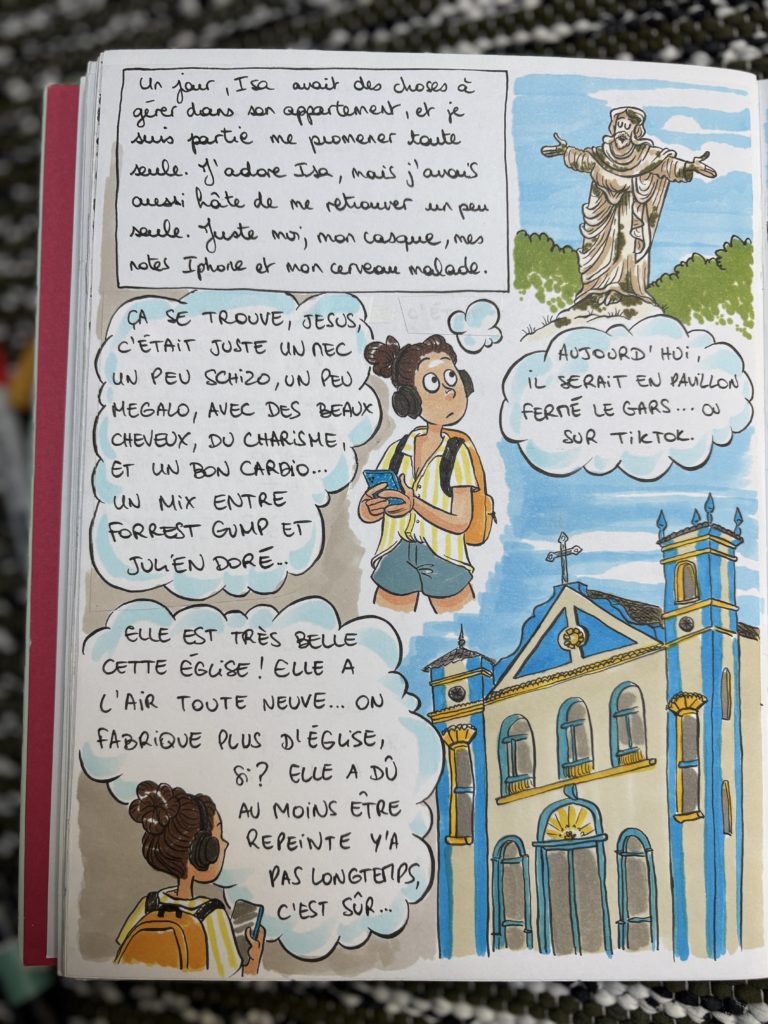 Un jour, Isa avait des choses à
gérer dans son appartement, et je
suis partie me promener toute
seule. J'adore Isa, mais j'avais
aussi hâte de me retrouver un peu
seule. Juste moi, mon casque, mes
notes Iphone et mon cerveau malade.
ÇA SE TROUVE, JESUS,
C'ÉTAIT JUSTE UN MEC
UN PEU SCHIZO, UN PEU
MEGALO, AVEC DES BEAUX
CHEVEUX, DU CHARISME,
ET UN BON CARDIO...
UN MIX ENTRE
FORREST GUMP ET
JULIEN DORÉ...
AUJOURD'HUI,
IL SERAIT EN PAVILLON
FERMÉ LE GARS... OU
SUR TIKTOK.
ELLE EST TRÈS BELLE
CETTE ÉGLISE ! ELLE A
L'AIR TOUTE NEUVE... ON
FABRIQUE PLUS D'ÉGLISE,
SI? ELLE A DÛ
AU MOINS ÊTRE
REPEINTE Y'A
PAS LONGTEMPS,
C'EST SÛR...